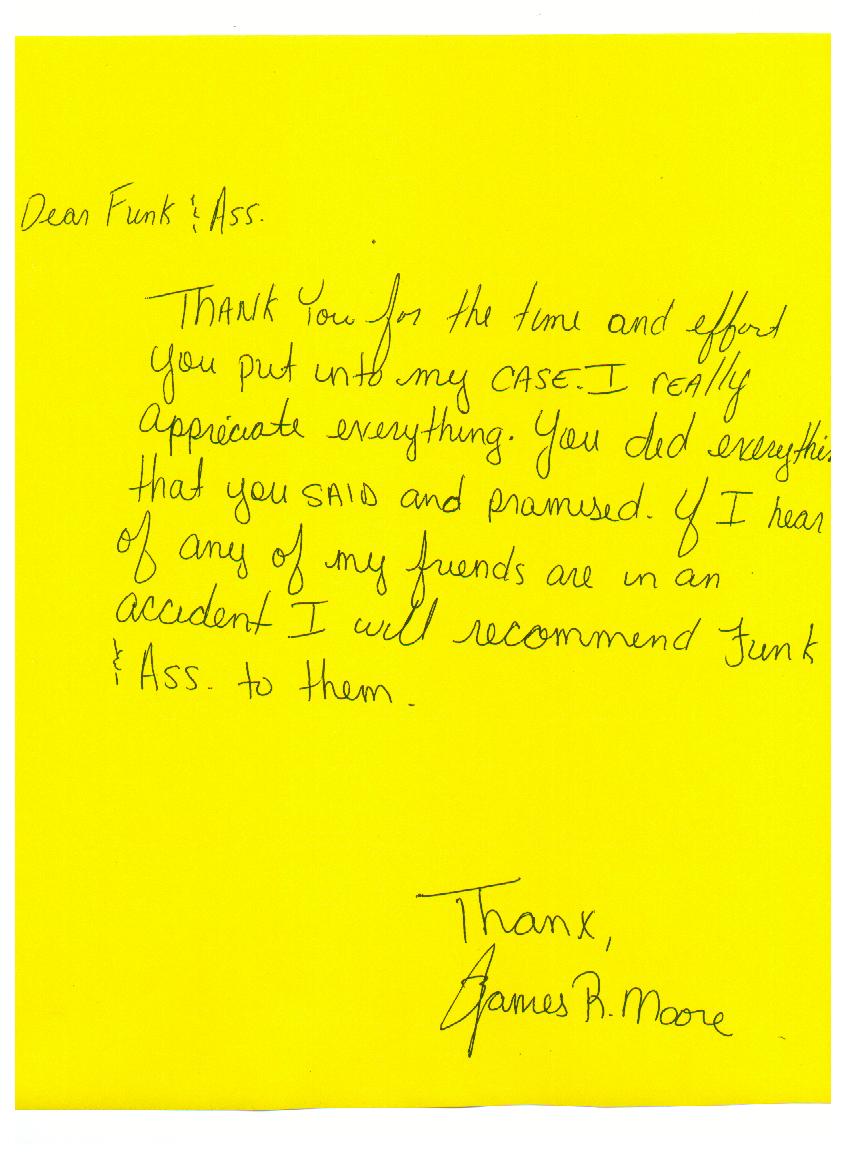 Dear Funk & Ass.
THANK You for the time and effort
you put into my CASE. I reAlly
appreciate everything. You did everythin
that you SAID and promised. If I hear
of any of my friends are in an
accident I will recommend Funk
& Ass. to them.
Thanx,
James R. Moore